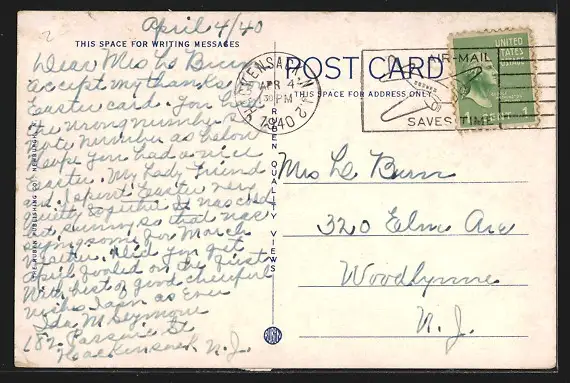 April 4/40
THIS SPACE FOR WRITING MESSAGES
Dear Mrs Le Burn
accept my thanks
Easter card. You had
the wrong number so
note number as below
hope you had a nice
Easter. My lady friend
and I spent Easter very
quietly together it was cold
but sunny so that was
saying some for March
weather. Did you get
April fooled on the first
With best of good cheerful
wishes I am as Ever
Ida M Seymour
182 Passaic St
Hackensack N. J.
THE RUBEN PUBLISHING CO. NEWBURGH
RUBEN QUALITY VIEWS
RUBEN
POST CARD
THIS SPACE FOR ADDRESS ONLY
HACKENSACK, N.J. 2
APR 4
30 PM
1940
AIR-MAIL
SAVES TIME
UNITED
STATES
POSTAGE
1
Mrs Le Burn
320 Elm Ave
Woodlynne
N. J.